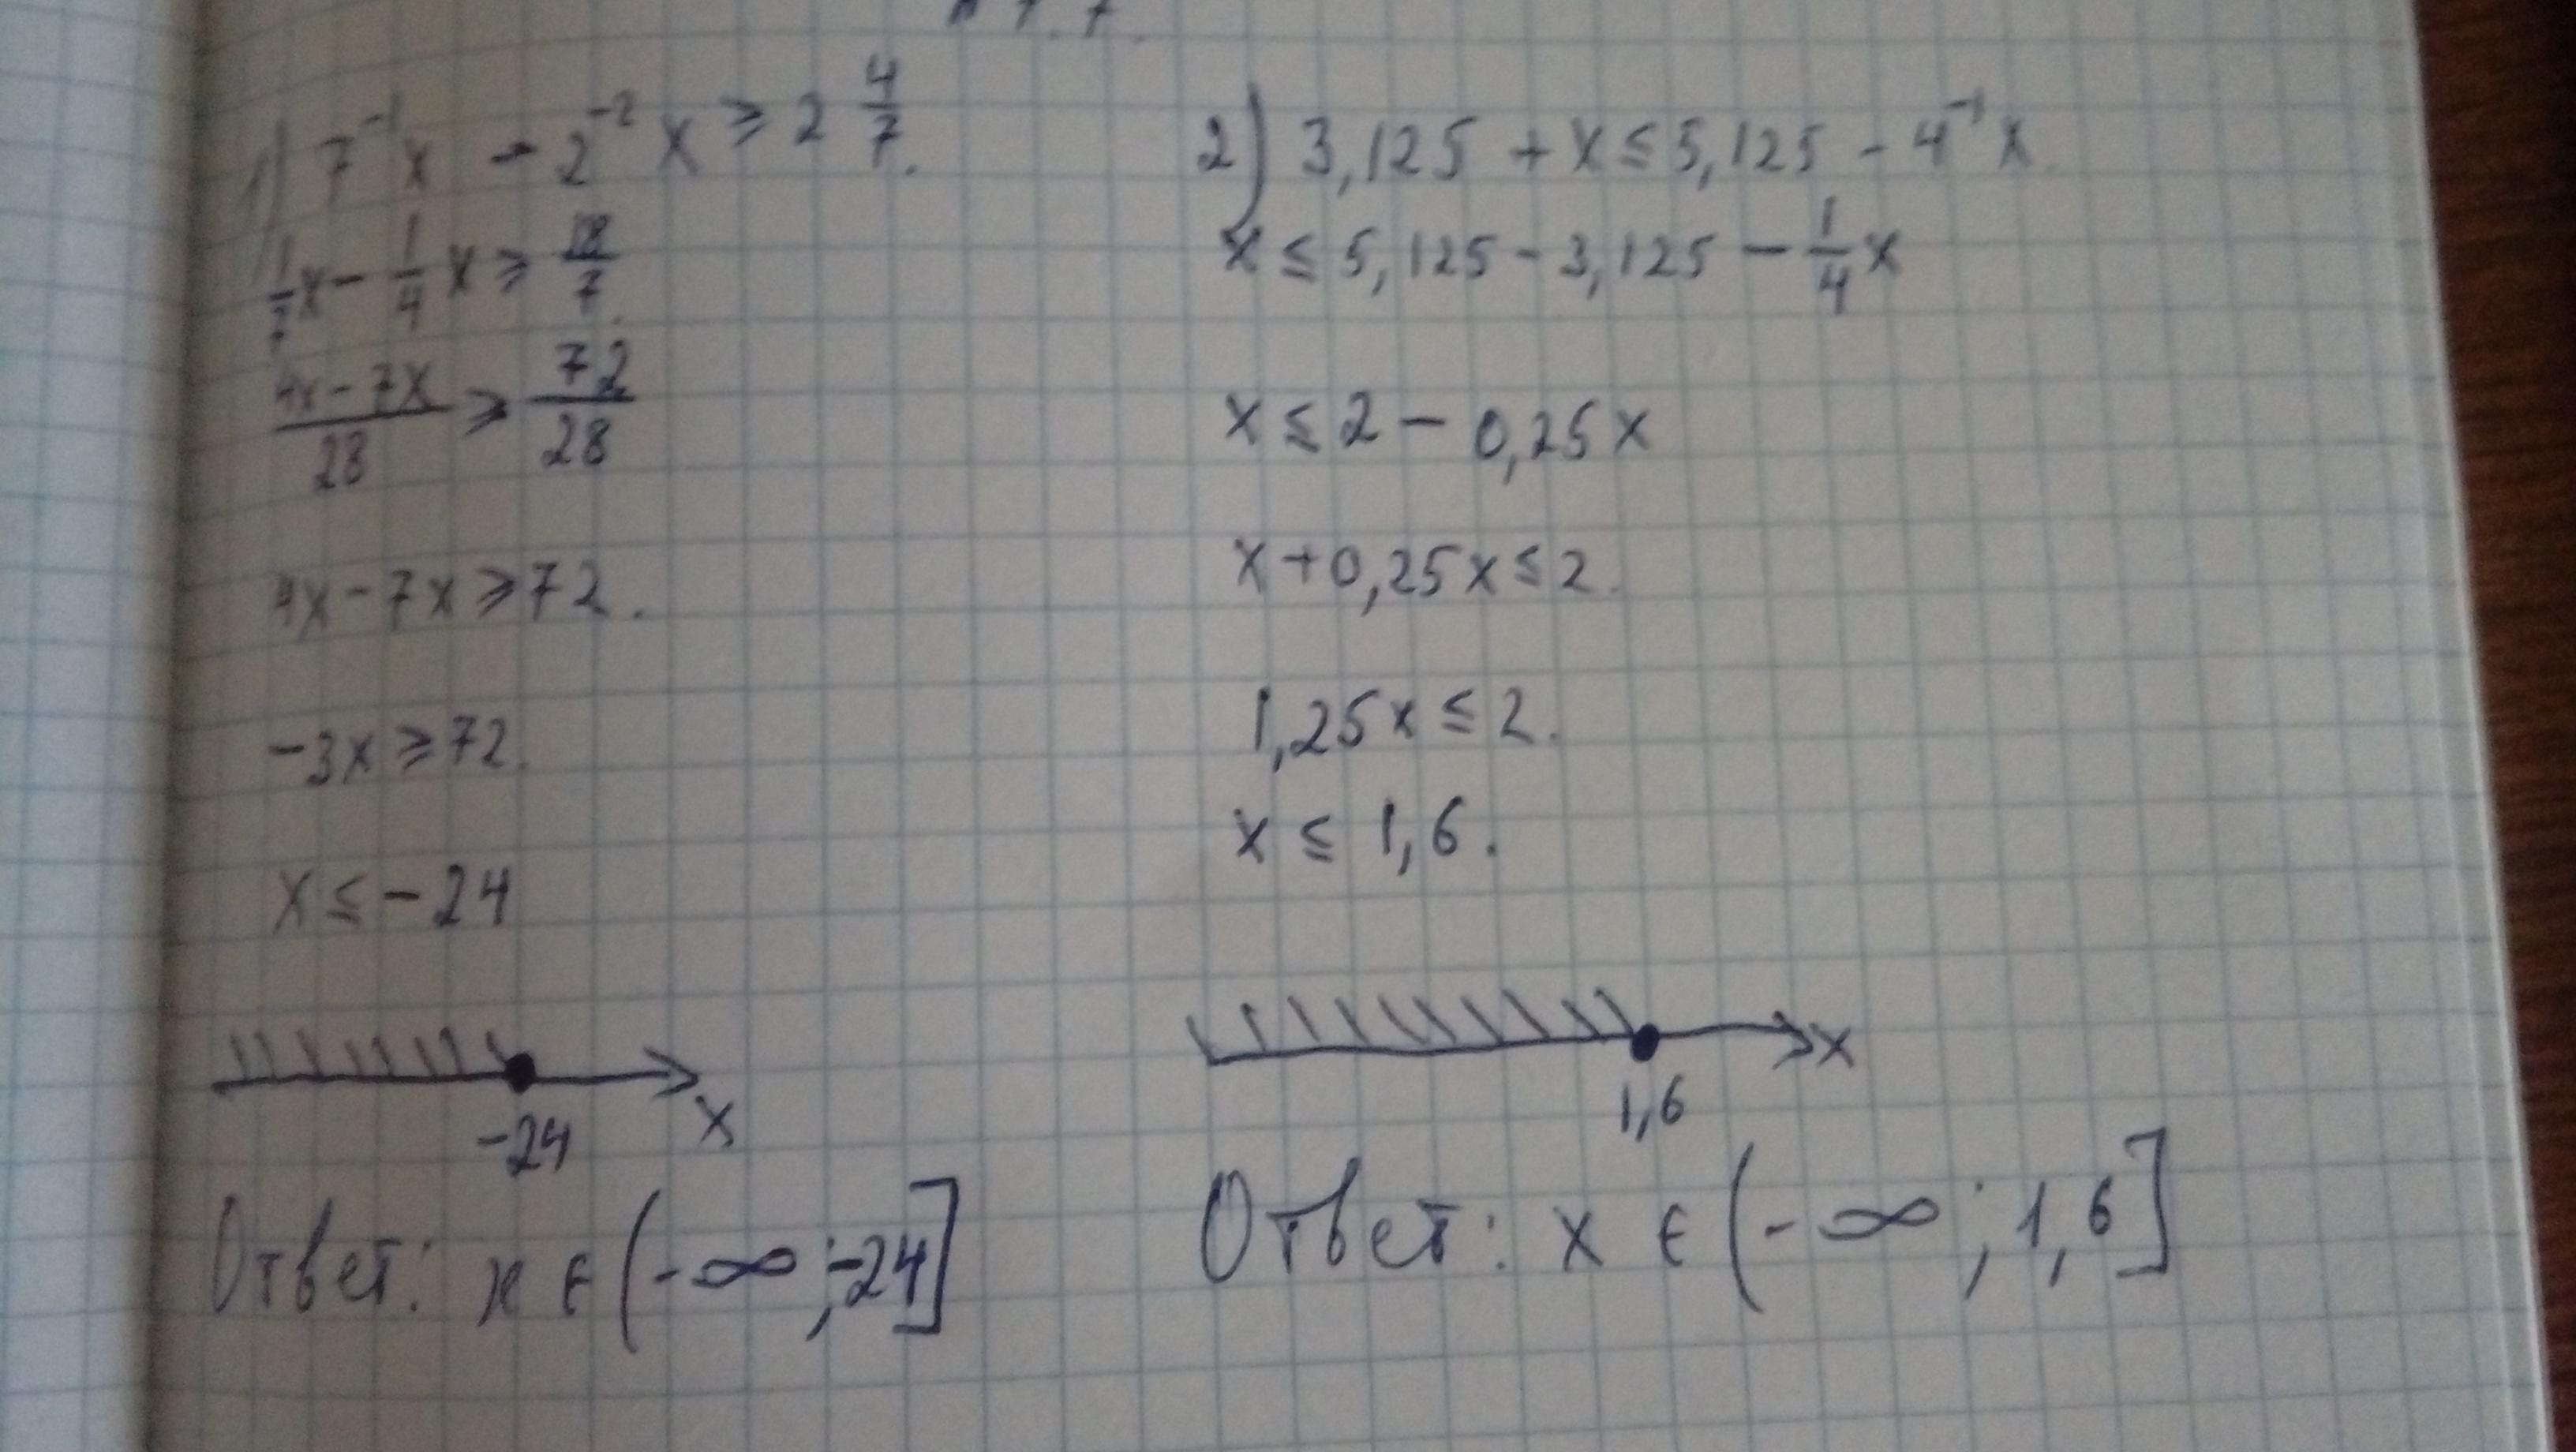 1) 7⁻¹x - 2⁻²x ⩾ 2 4/7.
1/7x - 1/4x ⩾ 18/7.
(4x - 7x)/28 ⩾ 72/28
4x - 7x ⩾ 72.
-3x ⩾ 72.
x ≤ -24
-24
x
Ответ: x ∈ (-∞; -24]
2) 3,125 + x ≤ 5,125 - 4⁻¹x
x ≤ 5,125 - 3,125 - 1/4x
x ≤ 2 - 0,25x
x + 0,25x ≤ 2.
1,25x ≤ 2.
x ≤ 1,6.
x
1,6
Ответ: x ∈ (-∞; 1,6]